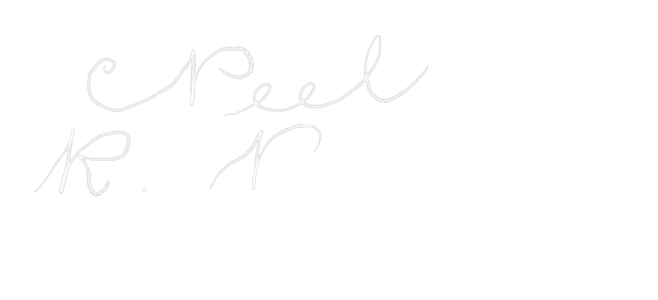 Peel
R. P